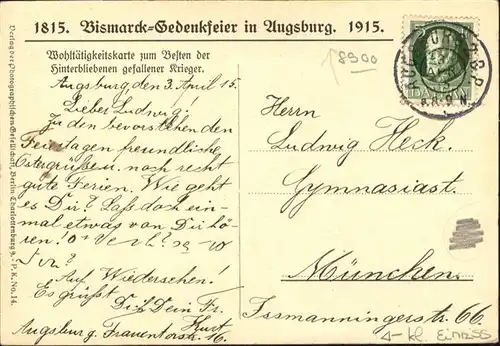 1815. Bismarck-Gedenkfeier in Augsburg. 1915.
Wohltätigkeitskarte zum Besten der
Hinterbliebenen gefallener Krieger.
Augsburg, den 3. April 15.
Lieber Ludwig!
Zu den bevorstehenden
Feiertagen freundliche
Ostergrüße u. noch recht
gute Ferien. Wie geht
es Dir? Laß doch ein-
mal etwas von Dir hö-
ren!
Auf Wiedersehen!
Es grüßt Dich Dein Fr.
Kurt
Augsburg, Frauentorstr. 16.
Verlag der Photographischen Gesellschaft, Berlin-Charlottenburg 9. - P. K. No. 14.
8900
Herrn
Ludwig Heck.
Gymnasiast.
München.
Ismaningerstr. 66
kl. Einriss